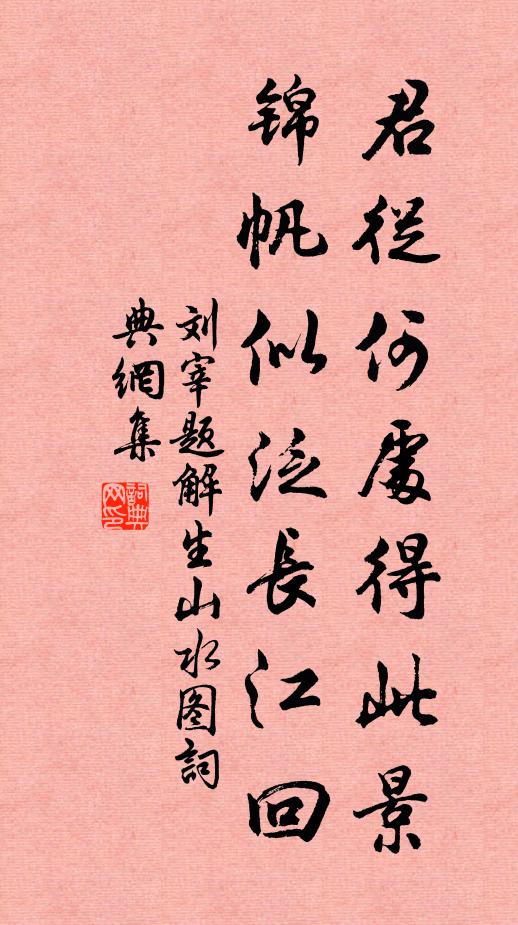 君從何處得此景
锦帆似泛長江回
刘宰题解生山水图詞
典網集
詞典
网印